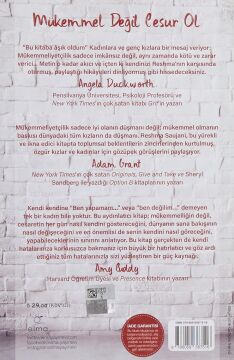 Mükemmel Değil Cesur Ol
"Bu kitaba âşık oldum" Kadınlara ve genç kızlara bir mesaj veriyor:
Mükemmeliyetçilik sadece imkânsız değil, aynı zamanda kötü ve zarar
verici. Metin o kadar akıcı ve içten ki kendinizi Reshma'nın karşısında
oturmuş, paylaştığı hikâyeleri dinliyormuş gibi hissedeceksiniz.
Angela Duckworth
Pensilvanya Üniversitesi, Psikoloji Profesörü ve
New York Times'ın çok satan kitabı Grit'in yazarı
Mükemmeliyetçilik sadece iyi olanın düşmanı değil; mükemmel olmanın
baskısı dünyadaki tüm kızların da düşmanı. Reshma Saujani, bu yürekli
ve ikna edici kitapta toplumsal beklentilerin zincirlerinden kurtulmuş,
özgür kızlar ve kadınlar için gözüpek görüşlerini paylaşıyor.
Adam Grant
New York Times'ın çok satan Originals, Give and Take ve Sheryl
Sandberg ile yazdığı Option B kitaplarının yazarı
Kendi kendine "Ben yapamam..." veya "ben değilim..." demeyen
tek bir kadın bile yoktur. Bu aydınlatıcı kitap; mükemmelliğin değil,
cesaretin her gün nasıl kendini göstereceğini, dünyanın sana bakışının
nasıl değişeceğini ve en önemlisi de senin kendini nasıl göreceğini,
yapabileceklerinin sınırını anlatıyor. Bu kitap gerçekten de kendi
hatalarımızı korkusuzca bakmamız için büyük bir hatırlatıcı ve göz ardı
ettiğimiz tüm hatalarınızla sizi yüzleştiren bir güç kaynağı.
Amy Cuddy
Harvard Öğretim Üyesi ve Presence kitabının yazarı
İADE GARANTİSİ